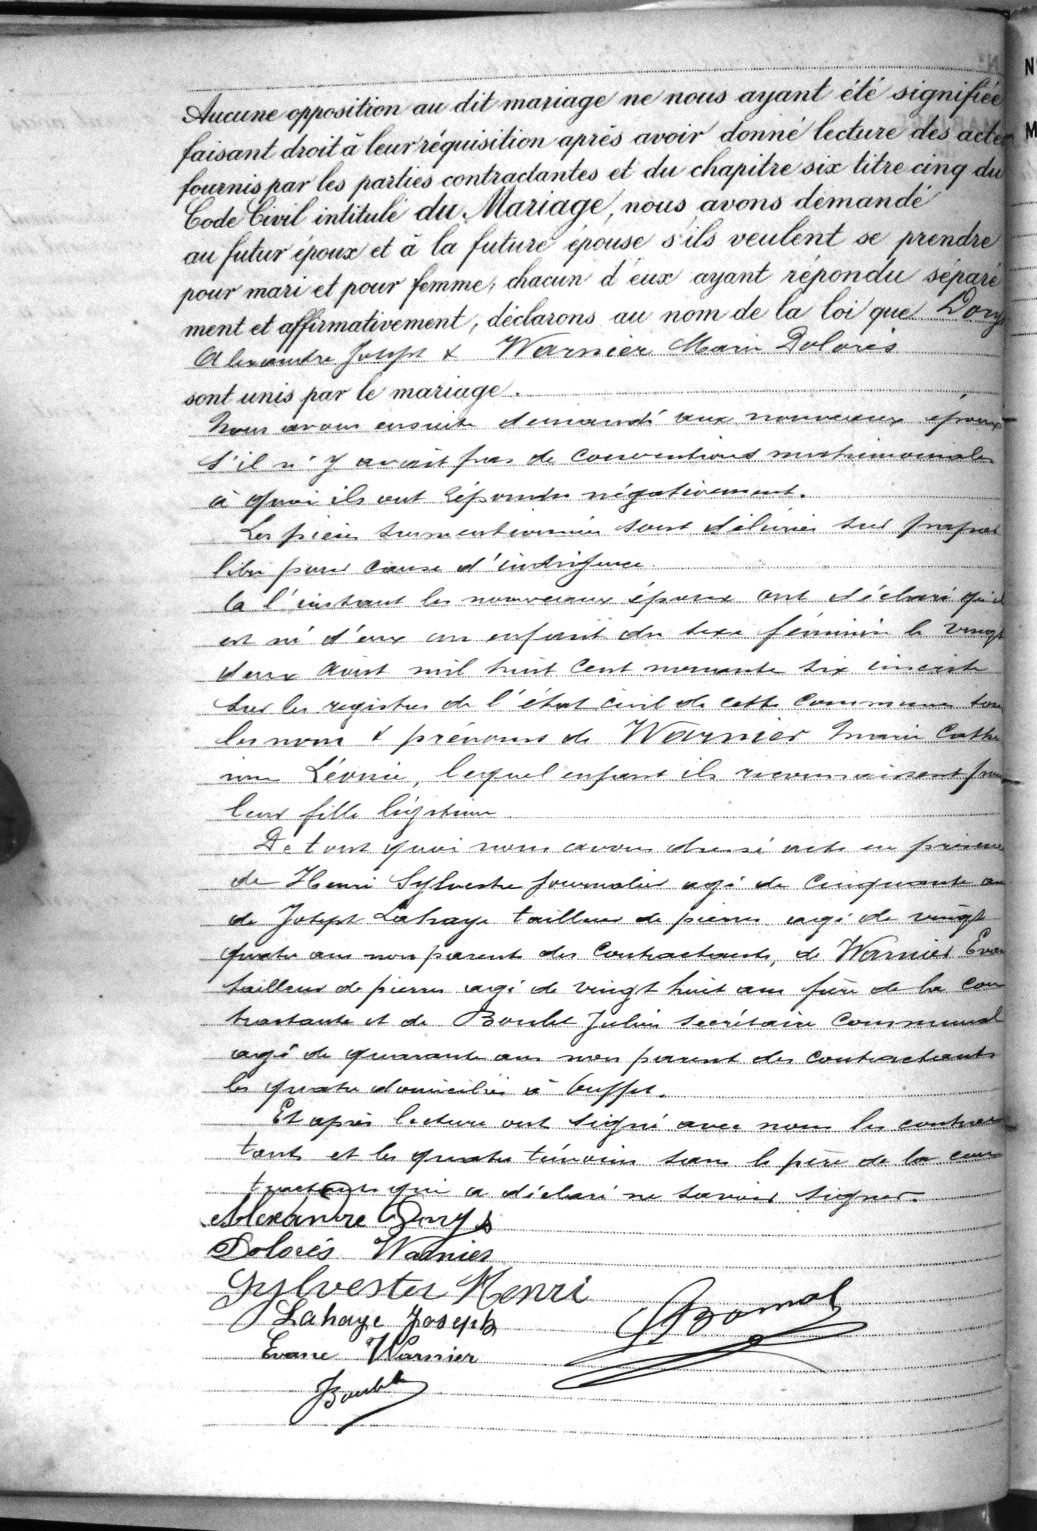 Aucune opposition au dit mariage ne nous ayant été signifiée
faisant droit à leur réquisition après avoir donné lecture des actes
fournis par les parties contractantes et du chapitre six titre cinq du
Code Civil intitulé du Mariage, nous avons demandé
au futur epoux et à la future épouse s'ils veulent se prendre
pour mari et pour femme, chacun d'eux ayant répondu séparé
ment et affirmativement, déclarons au nom de la loi que Dony
Alexandre Joseph & Warnier Marie Dolorès
sont unis par le mariage.
Nous avons ensuite demandé aux nouveaux époux
s'il n'y avait pas de conventions matrimoniales
à quoi ils ont répondu négativement.
Les pièces susmentionnées sont délivrées sur papier
libre pour cause d'indigence.
Et à l'instant les nouveaux époux ont déclaré qu'il
est né d'eux un enfant du sexe féminin le vingt
deux août mil huit cent nonante six inscrite
sur les registres de l'état civil de cette commune sous
les nom & prénoms de Warnier Marie Cathe
rine Léonie, lequel enfant ils reconnaissent pour
leur fille légitime
De tout quoi nous avons dressé acte en présence
de Henri Sylvestre journalier agé de cinquante ans
de Joseph Lahaye tailleur de pierres agé de vingt
quatre ans non parents des contractants, de Warnier Evan
tailleur de pierres agé de vingt huit ans frère de la con
tractante et de Boulet Julien secrétaire communal
agé de quarante ans non parent des contractants
les quatre domiciliés à Buffet.
Et après lecture ont signé avec nous les contrac
tants et les quatre témoins sans le père de la con
tractante qui a déclaré ne savoir signer.
Alexandre Dony
Dolorés Warnier
Sylvester Henri
Lahaye Joseph
Evane Warnier
JBoulet
Bomal